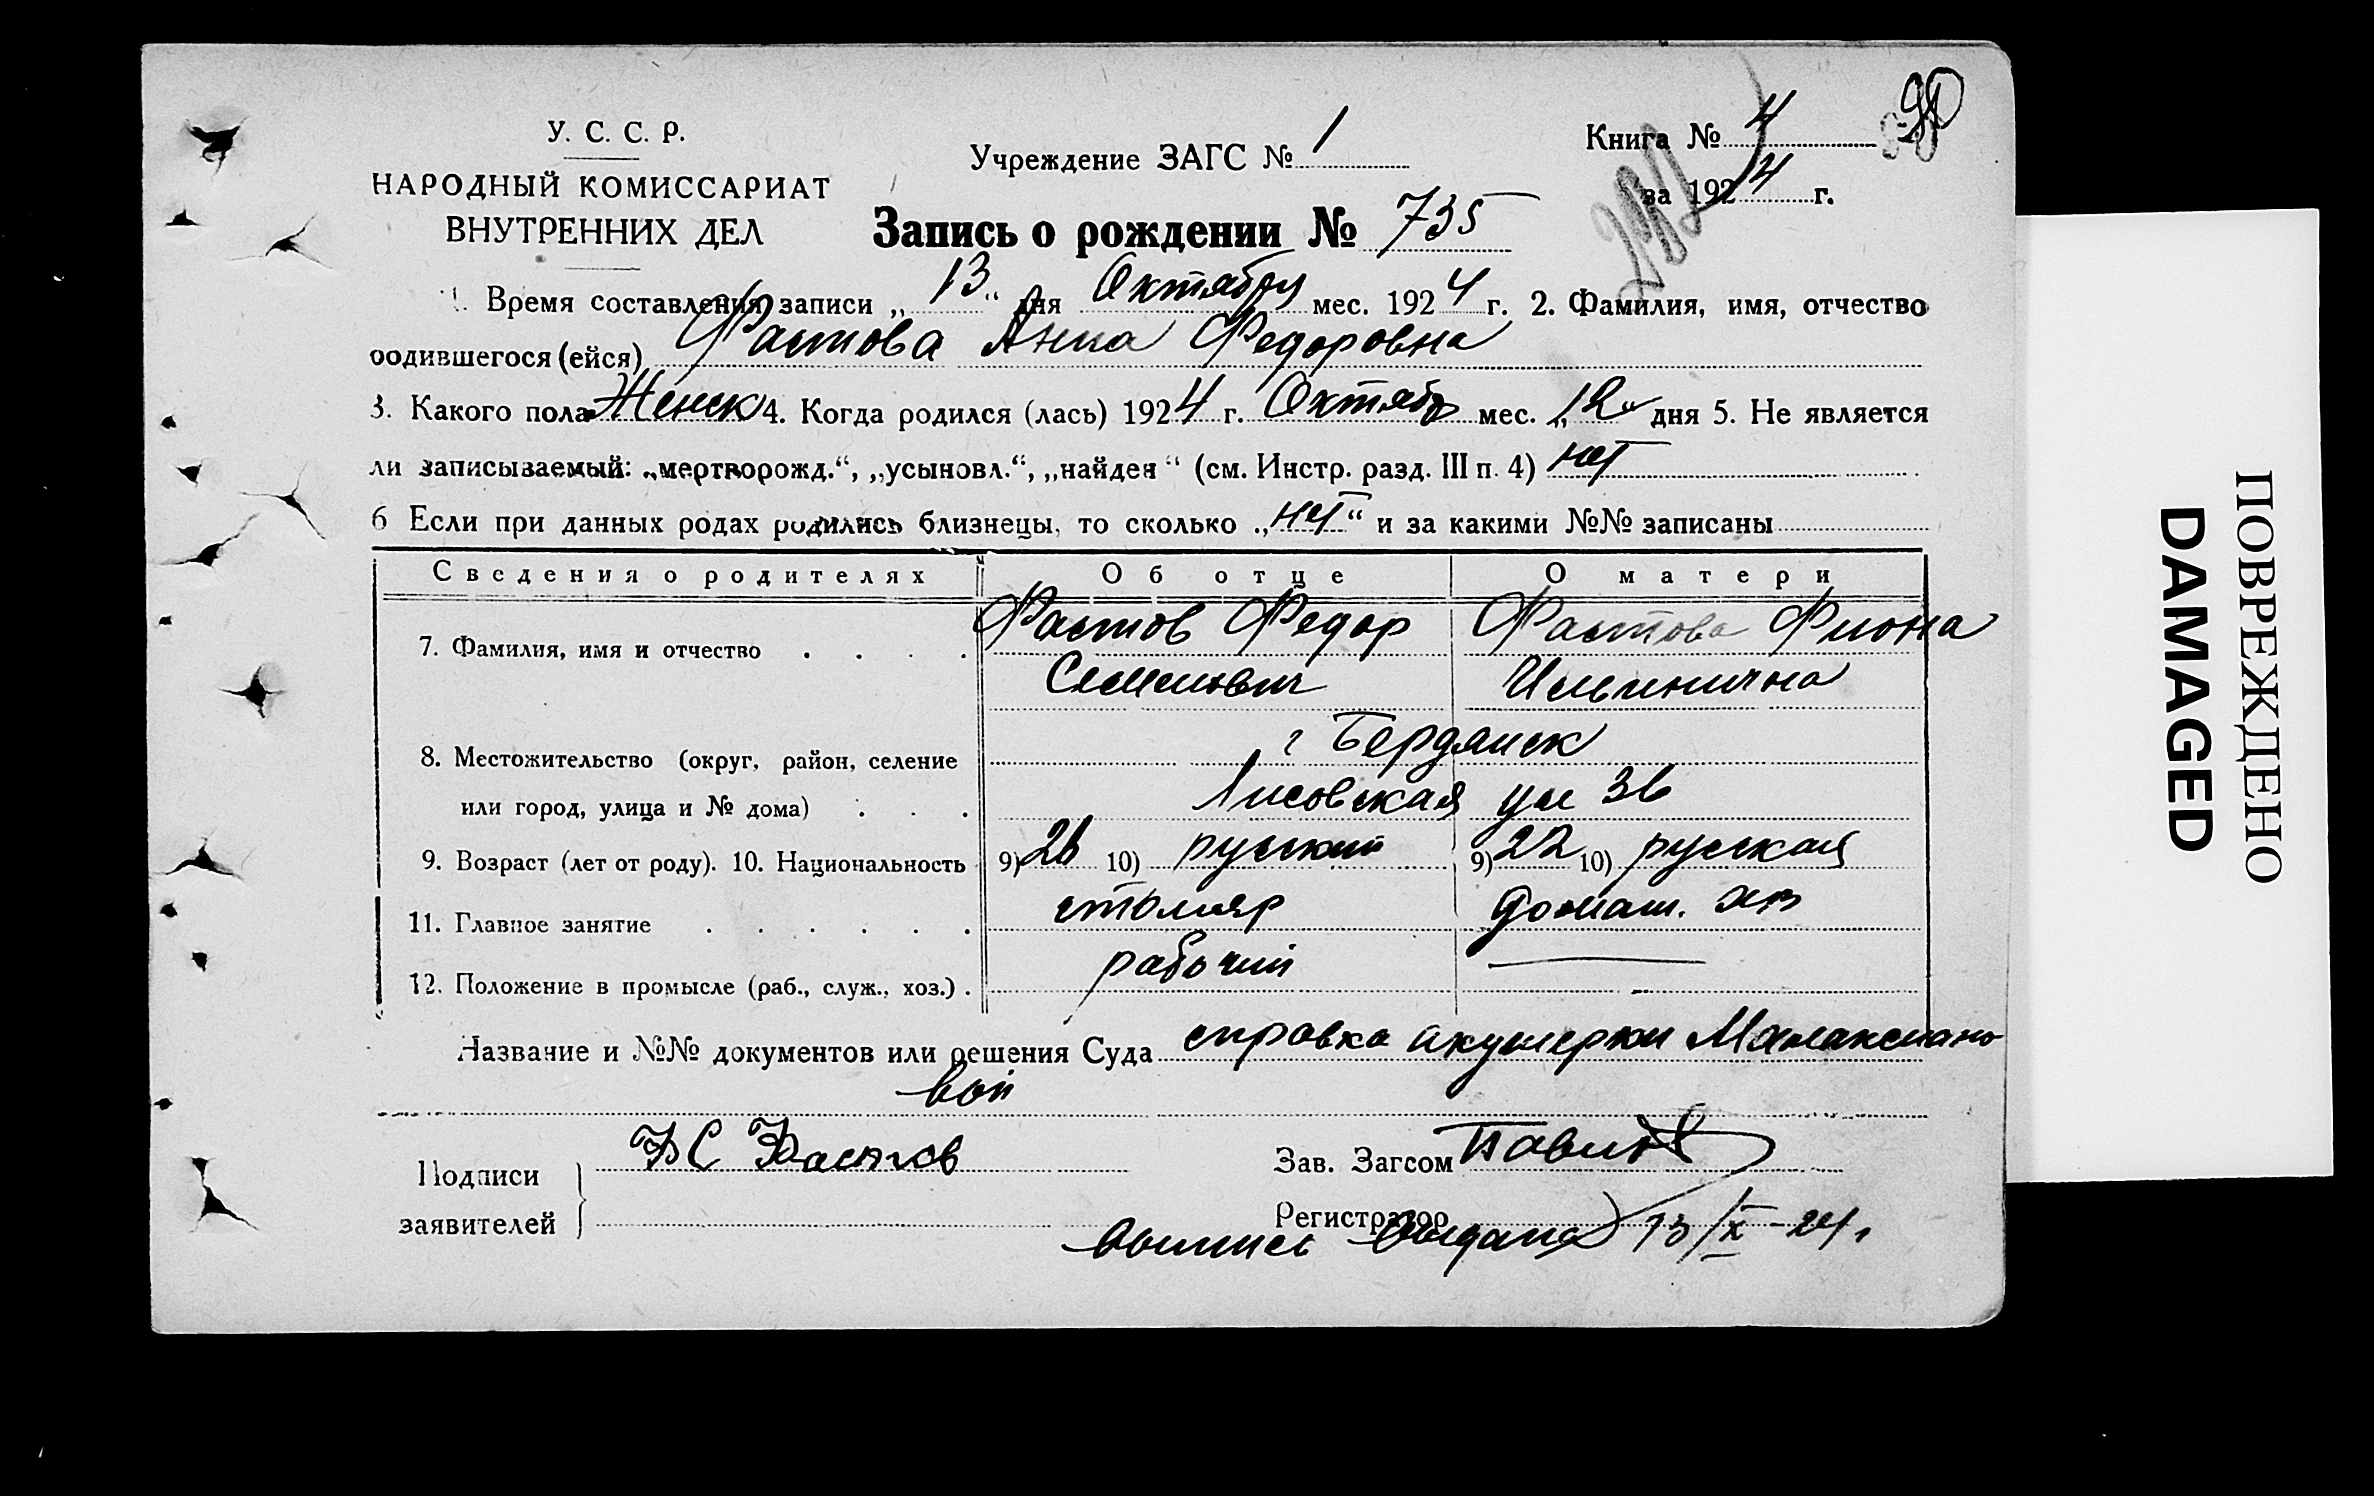 У. С. С. Р.
НАРОДНЫЙ КОМИССАРИАТ
ВНУТРЕННИХ ДЕЛ
Учреждение ЗАГС № 1
Книга № 4
за 1924 г.
Запись о рождении № 735
1. Время составления записи „13“ дня Октября мес. 1924 г. 2. Фамилия, имя, отчество
родившегося (ейся) Фастова Анна Федоровна
3. Какого пола Женск 4. Когда родился (лась) 1924 г. Октябр мес. „12“ дня 5. Не является
ли записываемый: „мертворожд.“, „усыновл.“, „найден“ (см. Инстр. разд. III п. 4) нет
6 Если при данных родах родились близнецы, то сколько „нет“ и за какими №№ записаны
Сведения о родителях Об отце О матери
7. Фамилия, имя и отчество . . . . Фастов Федор Фастова Фиона
Семенович Ильинична
г Бердянск
8. Местожительство (округ, район, селение
или город, улица и № дома) . . . Лисовская ул 36
9. Возраст (лет от роду). 10. Национальность 9) 26 10) русский 9) 22 10) русская
11. Главное занятие . . . . . . столяр домаш. хоз
12. Положение в промысле (раб., служ., хоз.) . рабочий —
Название и №№ документов или решения Суда справка акушерки Малаксиано
вой
Подписи
заявителей
Ф С Фастов
Зав. Загсом
Регистратор
Выпись выдана 13/X-24 г
ПОВРЕЖДЕНО
DAMAGED